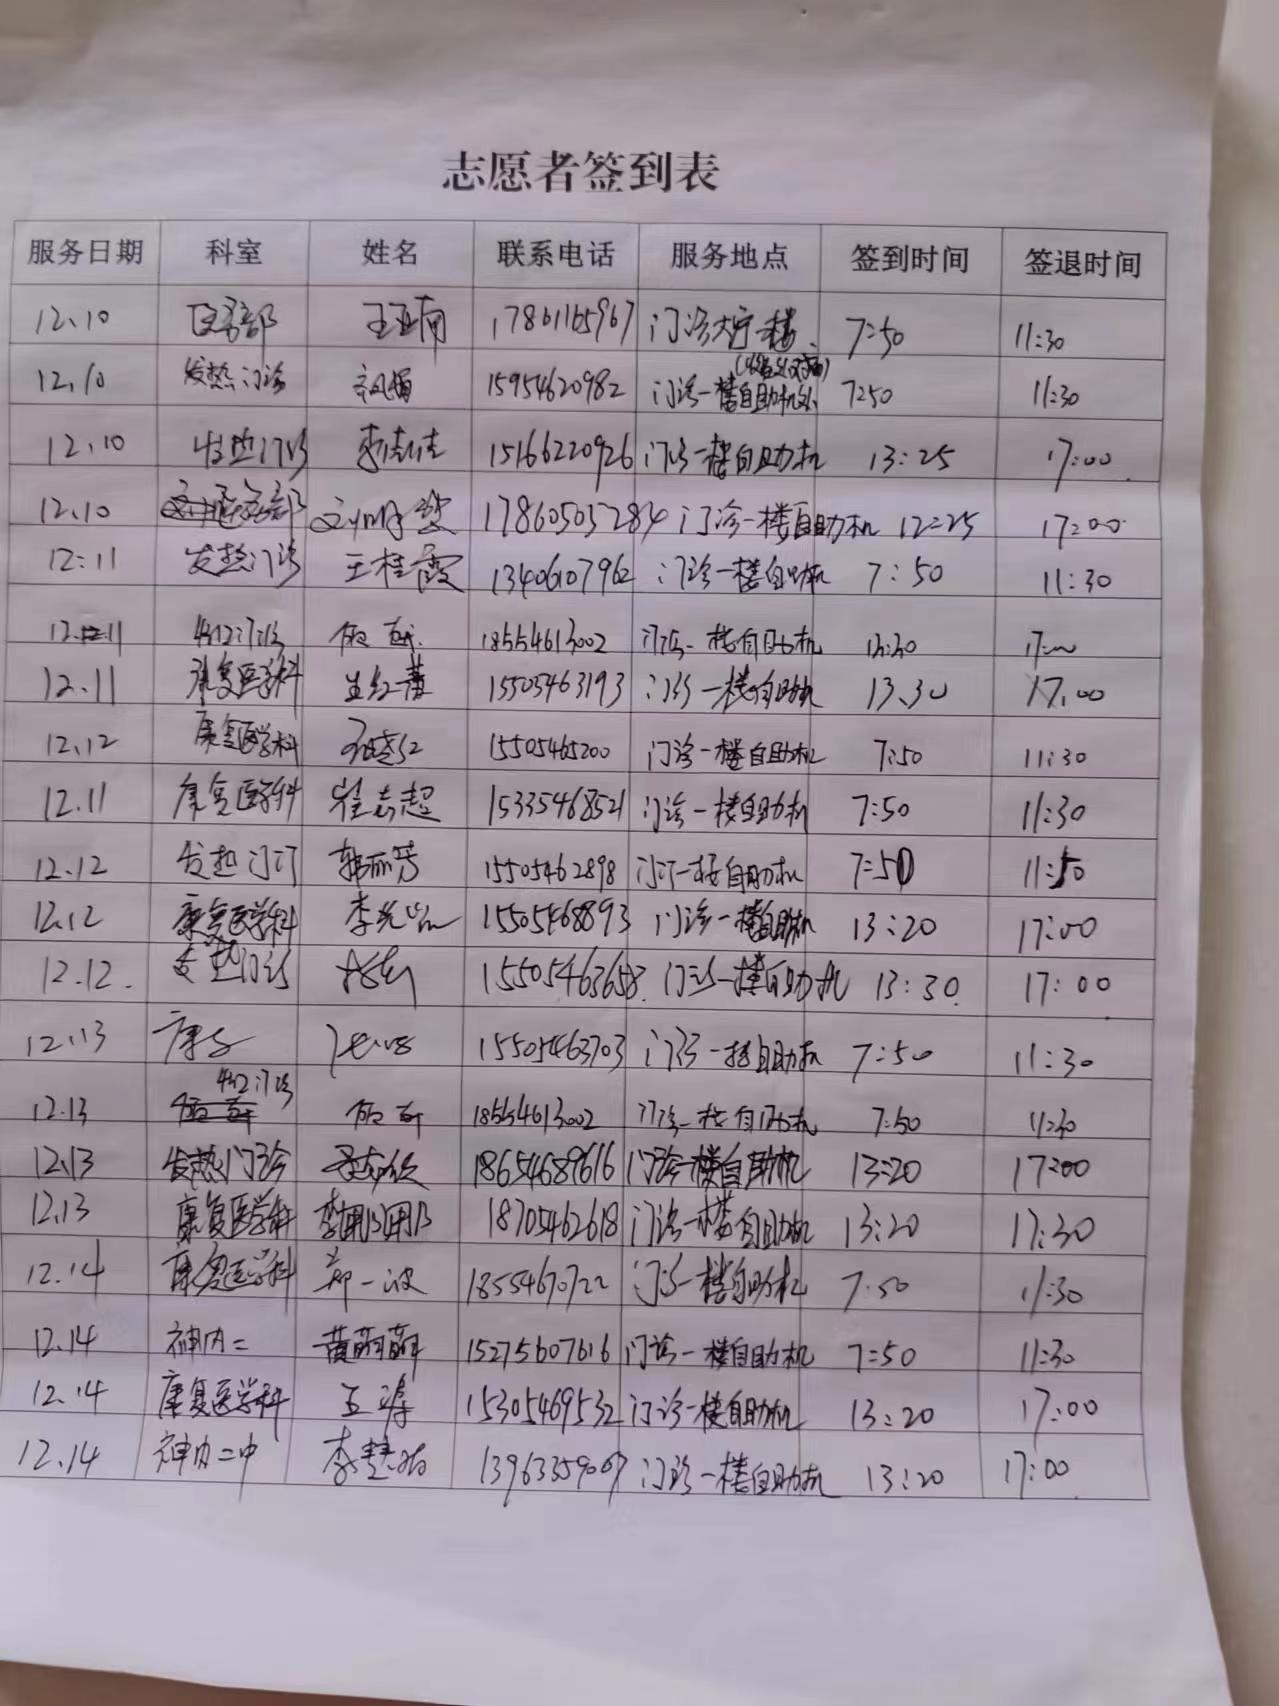 志愿者签到表
服务日期 科室 姓名 联系电话 服务地点 签到时间 签退时间
12.10 医务部 王亚南 17861165967 门诊大厅一楼 7:50 11:30
12.10 发热门诊 15954620982 门诊一楼自助机 7:50 11:30
12.10 发热门诊 李佳佳 15166220926 门诊一楼自助机 13:25 17:00
12.10 医务部 17860505284 门诊一楼自助机 12:25 17:00
12:11 发热门诊 王桂霞 13406107962 门诊一楼自助机 7:50 11:30
12.11 18554613002 门诊一楼自助机 13:30 17:00
12.11 康复医学科 王红蕾 15505463193 门诊一楼自助机 13.30 17.00
12.12 康复医学科 15505465200 门诊一楼自助机 7:50 11:30
12.11 康复医学科 崔志超 15335468521 门诊一楼自助机 7:50 11:30
12.12 发热门诊 韩丽芳 15505462898 门诊一楼自助机 7:50 11:50
12.12 康复医学科 15505468893 门诊一楼自助机 13:20 17:00
12.12. 发热门诊 15505463658 门诊一楼自助机 13:30 17:00
12.13 康复 15505463703 门诊一楼自助机 7:50 11:30
12.13 18554613002 门诊一楼自助机 7:50 11:30
12.13 发热门诊 18654689616 门诊一楼自助机 13:20 17:00
12.13 康复医学科 李珊珊 18705462618 门诊一楼自助机 13:20 17:30
12.14 康复医学科 郭一波 18554670722 门诊一楼自助机 7.50 11:30
12.14 神内二 黄萌萌 15275607616 门诊一楼自助机 7:50 11:30
12.14 康复医学科 15305469532 门诊一楼自助机 13:20 17:00
12.14 神内二中 13963359007 门诊一楼自助机 13:20 17:00